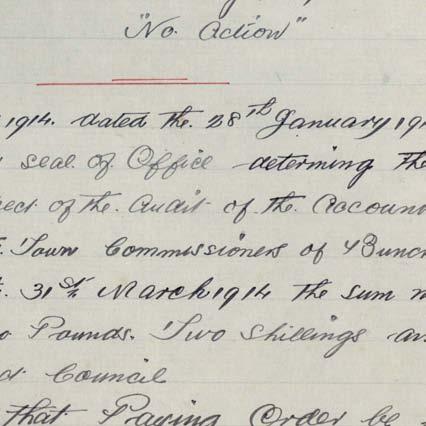 "No. Action"
1914. dated the. 28th January 191
seal of Office determing the
ect of the. Audit of the Accoun
Town Commissioners of Bunc
31st March 1914 the sum
o Pounds. Two shillings an
d Council
that Paying Order be